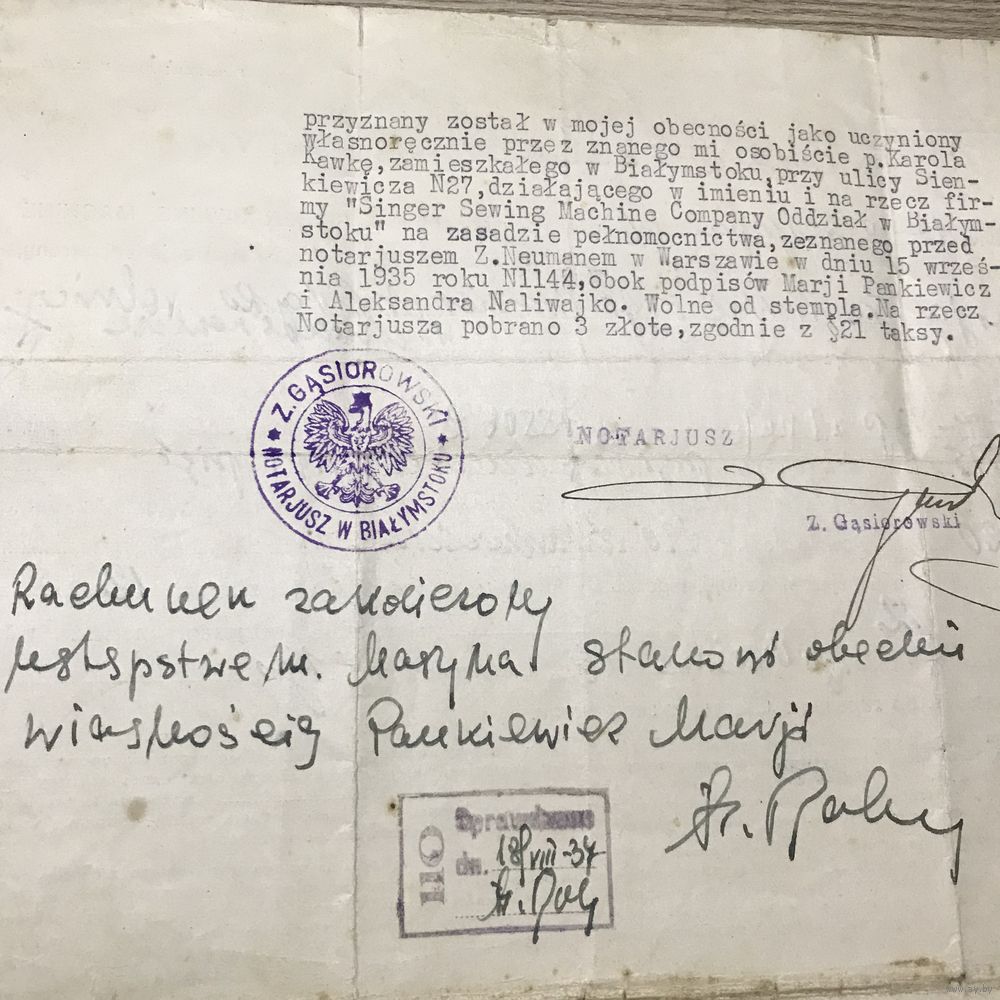 przyznany został w mojej obecności jako uczyniony
własnoręcznie przez znanego mi osobiście p.Karola
Kawkę,zamieszkałego w Białymstoku,przy ulicy Sien-
kiewicza N27,działającego w imieniu i na rzecz fir-
my "Singer Sewing Machine Company Oddział w Białym-
stoku" na zasadzie pełnomocnictwa,zeznanego przed
notarjuszem Z.Neumanem w Warszawie w dniu 15 wrześ-
nia 1935 roku N1144,obok podpisów Marji Pankiewicz
i Aleksandra Naliwajko. Wolne od stempla.Na rzecz
Notarjusza pobrano 3 złote,zgodnie z §21 taksy.
Z. GĄSIOROWSKI
NOTARJUSZ W BIAŁYMSTOKU
NOTARJUSZ
Z. Gąsiorowski
Rachunek zakończony
Maszyna stanowi obecnie
własnością Pankiewicz Marji
110
Sprawdzono
dn. 18/VIII-37
www.ay.by